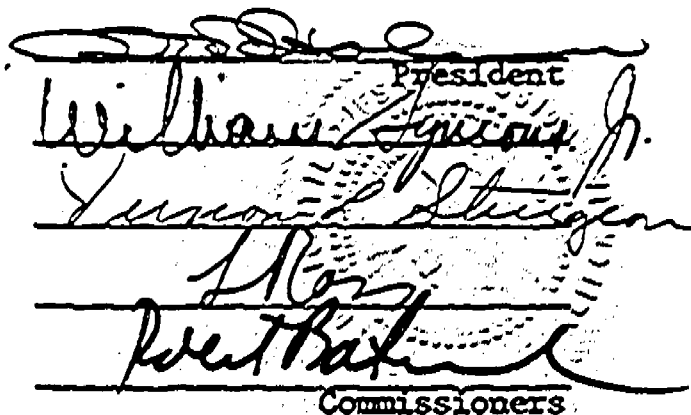 President
William Symons Jr.
Vernon L Sturgeon
L Ross
Robert Batinovich
Commissioners